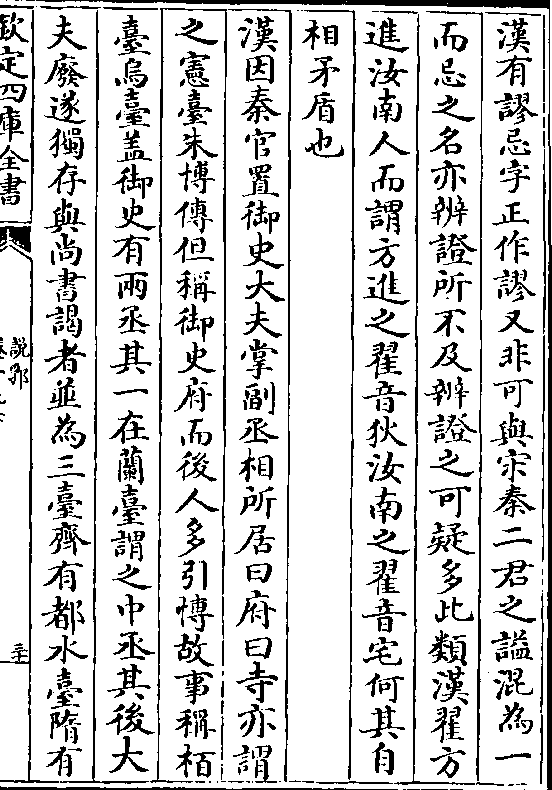 漢有謬忌字正作謬又非可與宋秦二君之謚混為一
而忌之名亦辨證所不及辨證之可疑多此類漢翟方
進汝南人而謂方進之翟音狄汝南之翟音宅何其自
相矛盾也
漢因秦官置御史大夫掌副丞相所居曰府曰寺亦謂
之憲臺朱博傳但稱御史府而後人多引博故事稱栢
臺烏臺盖御史有兩丞其一在蘭臺謂之中丞其後大
夫廢遂獨存與尚書謁者並為三臺齊有都水臺隋有
欽定四庫全書
說郛